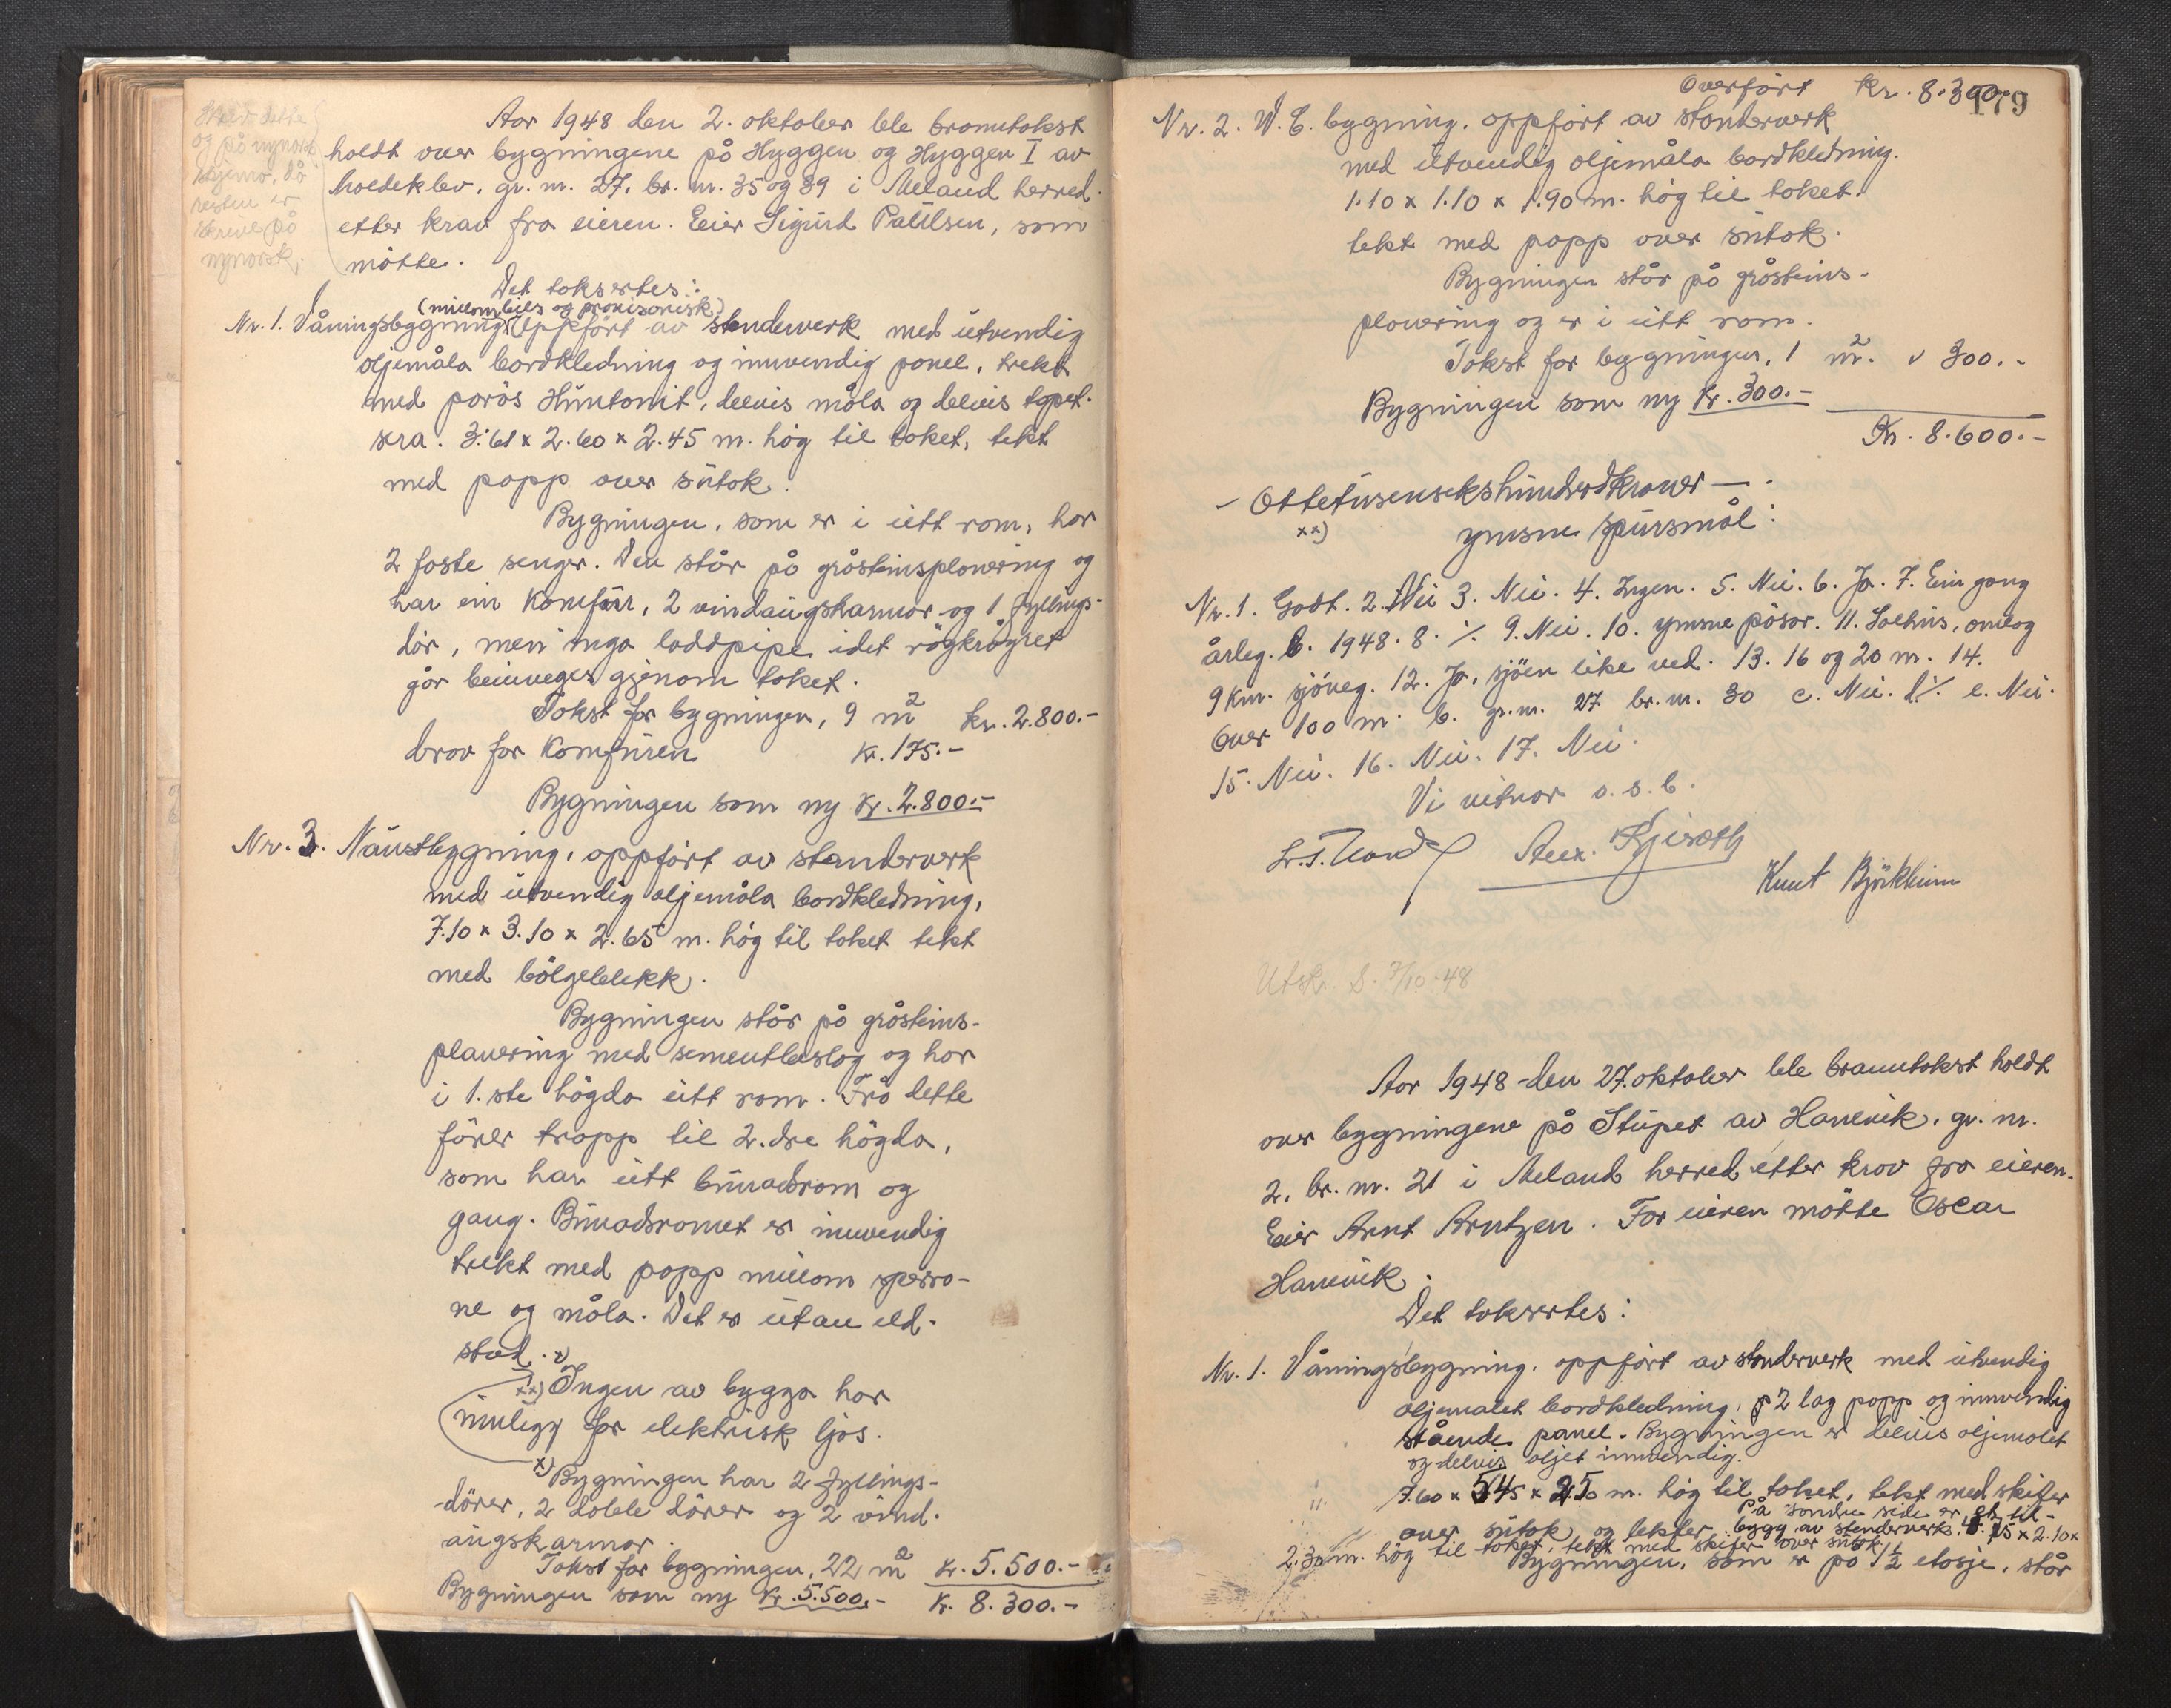 Aar 1948 den 2. oktober ble branntakst
holdt over bygningene på Hyggen og Hyggen I av
Moldeklev, gr. nr. 27, br. nr. 35 og 39 i Meland herred
etter krav fra eieren. Eier Sigurd Paulsen, som
møtte.
og på nynorsk
resten er
skrive på
nynorsk.
Det taksertes:
(millombils og provisorisk)
Nr. 1. Våningsbygning, oppført av stenderverk med utvendig
oljemåla bordkledning og innvendig panel, trekt
med porøs Huntonit, delvis måla og delvis tapet-
sera. 3.61 x 2.60 x 2.45 m. høg til taket, tekt
med papp over sutak.
Bygningen, som er i eitt rom, har
2 faste senger. Den står på gråsteinsplanering og
har ein komfür, 2 vindaugskarmar og 1 fyllings-
dør, men inga loddpipe idet røgkrøyret
går beinveges gjenom taket.
Takst for bygningen, 9 m² kr. 2.800.-
Derav for komfüren kr. 175.-
Bygningen som ny kr. 2.800.-
Nr. 3. Naustbygning, oppført av stenderverk
med utvendig oljemåla bordkledning,
7.10 x 3.10 x 2.65 m. høg til taket tekt
med bölgeblekk.
Bygningen står på gråsteins-
planering med sementbeslag og har
i 1.ste högda eitt rom. Frå dette
fører trapp til 2.dre högda,
som har eitt bunadsrom og
gang. Bunadsromet er innvendig
trekt med papp millom sperra-
ne og måla. Det er utan eld-
stad. x)
xx) Ingen av bygga har
innlegg for elektrisk ljos.
x) Bygningen har 2 fyllings-
dörer, 2 doble dörer og 2 vind-
augskarmar.
Takst for bygningen, 22 m² kr. 5.500.-
Bygningen som ny kr. 5.500.- kr. 8.300.-
179
Overført kr. 8.300.-
Nr. 2. W. C. bygning, oppført av stenderverk
med utvendig oljemåla bordkledning.
1.10 x 1.10 x 1.90 m. høg til taket.
tekt med papp over sutak.
Bygningen står på gråsteins-
planering og er i eitt rom.
Takst for bygningen, 1 m². " 300.-
Bygningen som ny kr. 300.-
Kr. 8.600.-
- Ottetusensekshundredkroner -
xx) ymsne spursmål:
Nr. 1. Godt. 2. Nei 3. Nei. 4. Ingen. 5. Nei. 6. Ja. 7. Ein gang
årleg. b. 1948. 8. ٪ 9. Nei. 10. ymsne pösar. 11. Salhus, omlag
9 km. sjöveg. 12. Ja, sjöen like ved. 13. 16 og 20 m. 14.
Over 100 m. b. gr. nr. 27 br. nr. 30 c. Nei. d. ٪ e. Nei.
15. Nei. 16. Nei. 17. Nei.
Vi vitnar o. s. b.
Knut Björkheim
Utskr. S. 7/10-48
Aar 1948 den 27. oktober ble branntakst holdt
over bygningene på Stupet av Hanevik, gr. nr.
2, br. nr. 21 i Meland herred etter krav fra eieren.
Eier Arnt Arntzen. For eieren møtte Oscar
Hanevik.
Det taksertes:
Nr. 1. Våningsbygning, oppført av stenderverk med utvendig
oljemalet bordkledning, 2 lag papp og innvendig
stående panel. Bygningen er delvis oljemalet
og delvis oljet innvendig.
7.60 x 5.45 x 2.50 m. høg til taket, tekt med skifer
over sutak og lekter. På søndre side er et til-
bygg av stenderverk, 4.75 x 2.10 x
2.30 m. høg til taket, tekt med skifer over sutak
Bygningen, som er på 1½ etasje, står